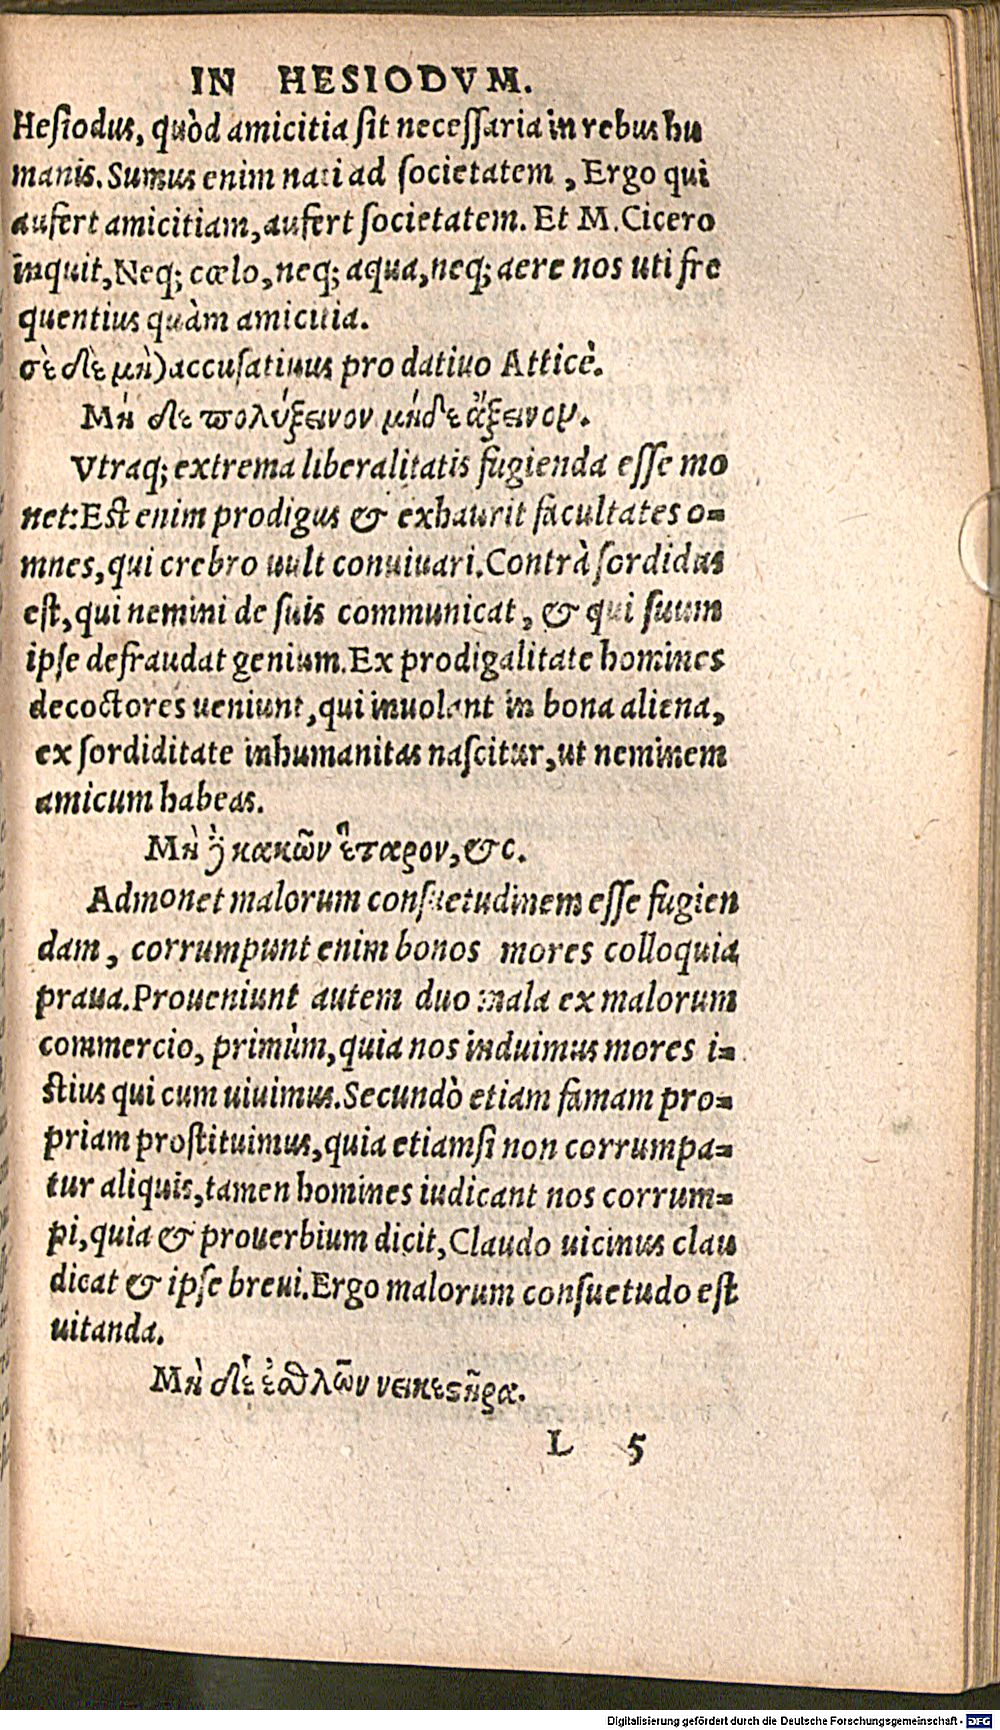 IN HESIODVM.
Hesiodus, quòd amicitia sit necessaria in rebus hu
manis. Sumus enim nati ad societatem, Ergo qui
aufert amicitiam, aufert societatem. Et M. Cicero
inquit, Neq; cœlo, neq; aqua, neq; aere nos uti fre
quentius quàm amicitia.
σὲ δὲ μὴ) accusatiuus pro datiuo Atticè.
Μὴ δὲ πολύξεινον μήδε ἄξεινον.
Vtraq; extrema liberalitatis fugienda esse mo
net: Est enim prodigus & exhaurit facultates o=
mnes, qui crebro uult conuiuari. Contrà sordidus
est, qui nemini de suis communicat, & qui suum
ipse defraudat genium. Ex prodigalitate homines
decoctores ueniunt, qui inuolant in bona aliena,
ex sordiditate inhumanitas nascitur, ut neminem
amicum habeas.
Μὴ ὃ κακῶν ἕταρον, &c.
Admonet malorum consuetudinem esse fugien
dam, corrumpunt enim bonos mores colloquia
praua. Proueniunt autem duo mala ex malorum
commercio, primùm, quia nos induimus mores i=
stius qui cum uiuimus. Secundò etiam famam pro=
priam prostituimus, quia etiamsi non corrumpa=
tur aliquis, tamen homines iudicant nos corrum=
pi, quia & prouerbium dicit, Claudo uicinus clau
dicat & ipse breui. Ergo malorum consuetudo est
uitanda.
Μὴ δὲ ἐσθλῶν νεικεστῆρα.
L 5
Digitalisierung gefördert durch die Deutsche Forschungsgemeinschaft - DFG